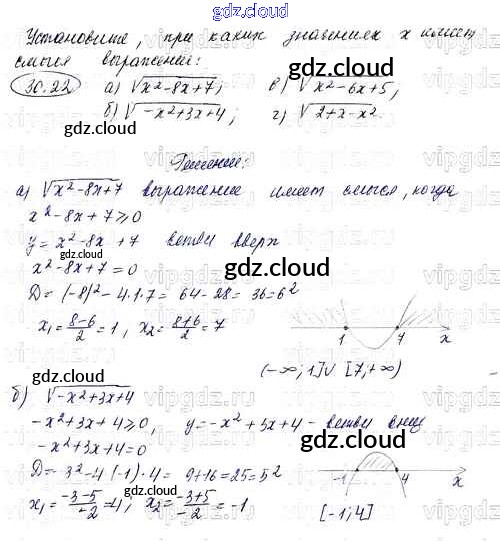 gdz.cloud
Установите, при каких значениях x имеет
смысл выражение:
30.22 а) √(x²-8x+7); в) √(x²-6x+5;
б) √(-x²+3x+4); г) √(2+x-x².
gdz.cloud gdz.cloud
Решение:
а) √(x²-8x+7) выражение имеет смысл, когда
x²-8x+7≥0 gdz.cloud
y=x²-8x+7 ветви вверх
x²-8x+7=0 gdz.cloud
D=(-8)²-4·1·7=64-28=36=6²
x₁=(8-6)/2=1, x₂=(8+6)/2=7
1 7 x
gdz.cloud
(-∞;1]∪[7;+∞)
б) √(-x²+3x+4)
-x²+3x+4≥0, y=-x²+5x+4-ветви вниз
-x²+3x+4=0 gdz.cloud
D=3²-4(-1)·4=9+16=25=5²
-1 4 x
gdz.cloud
x₁=(-3-5)/(-2)=4; x₂=(-3+5)/(-2)=-1
[-1;4]
gdz.cloud